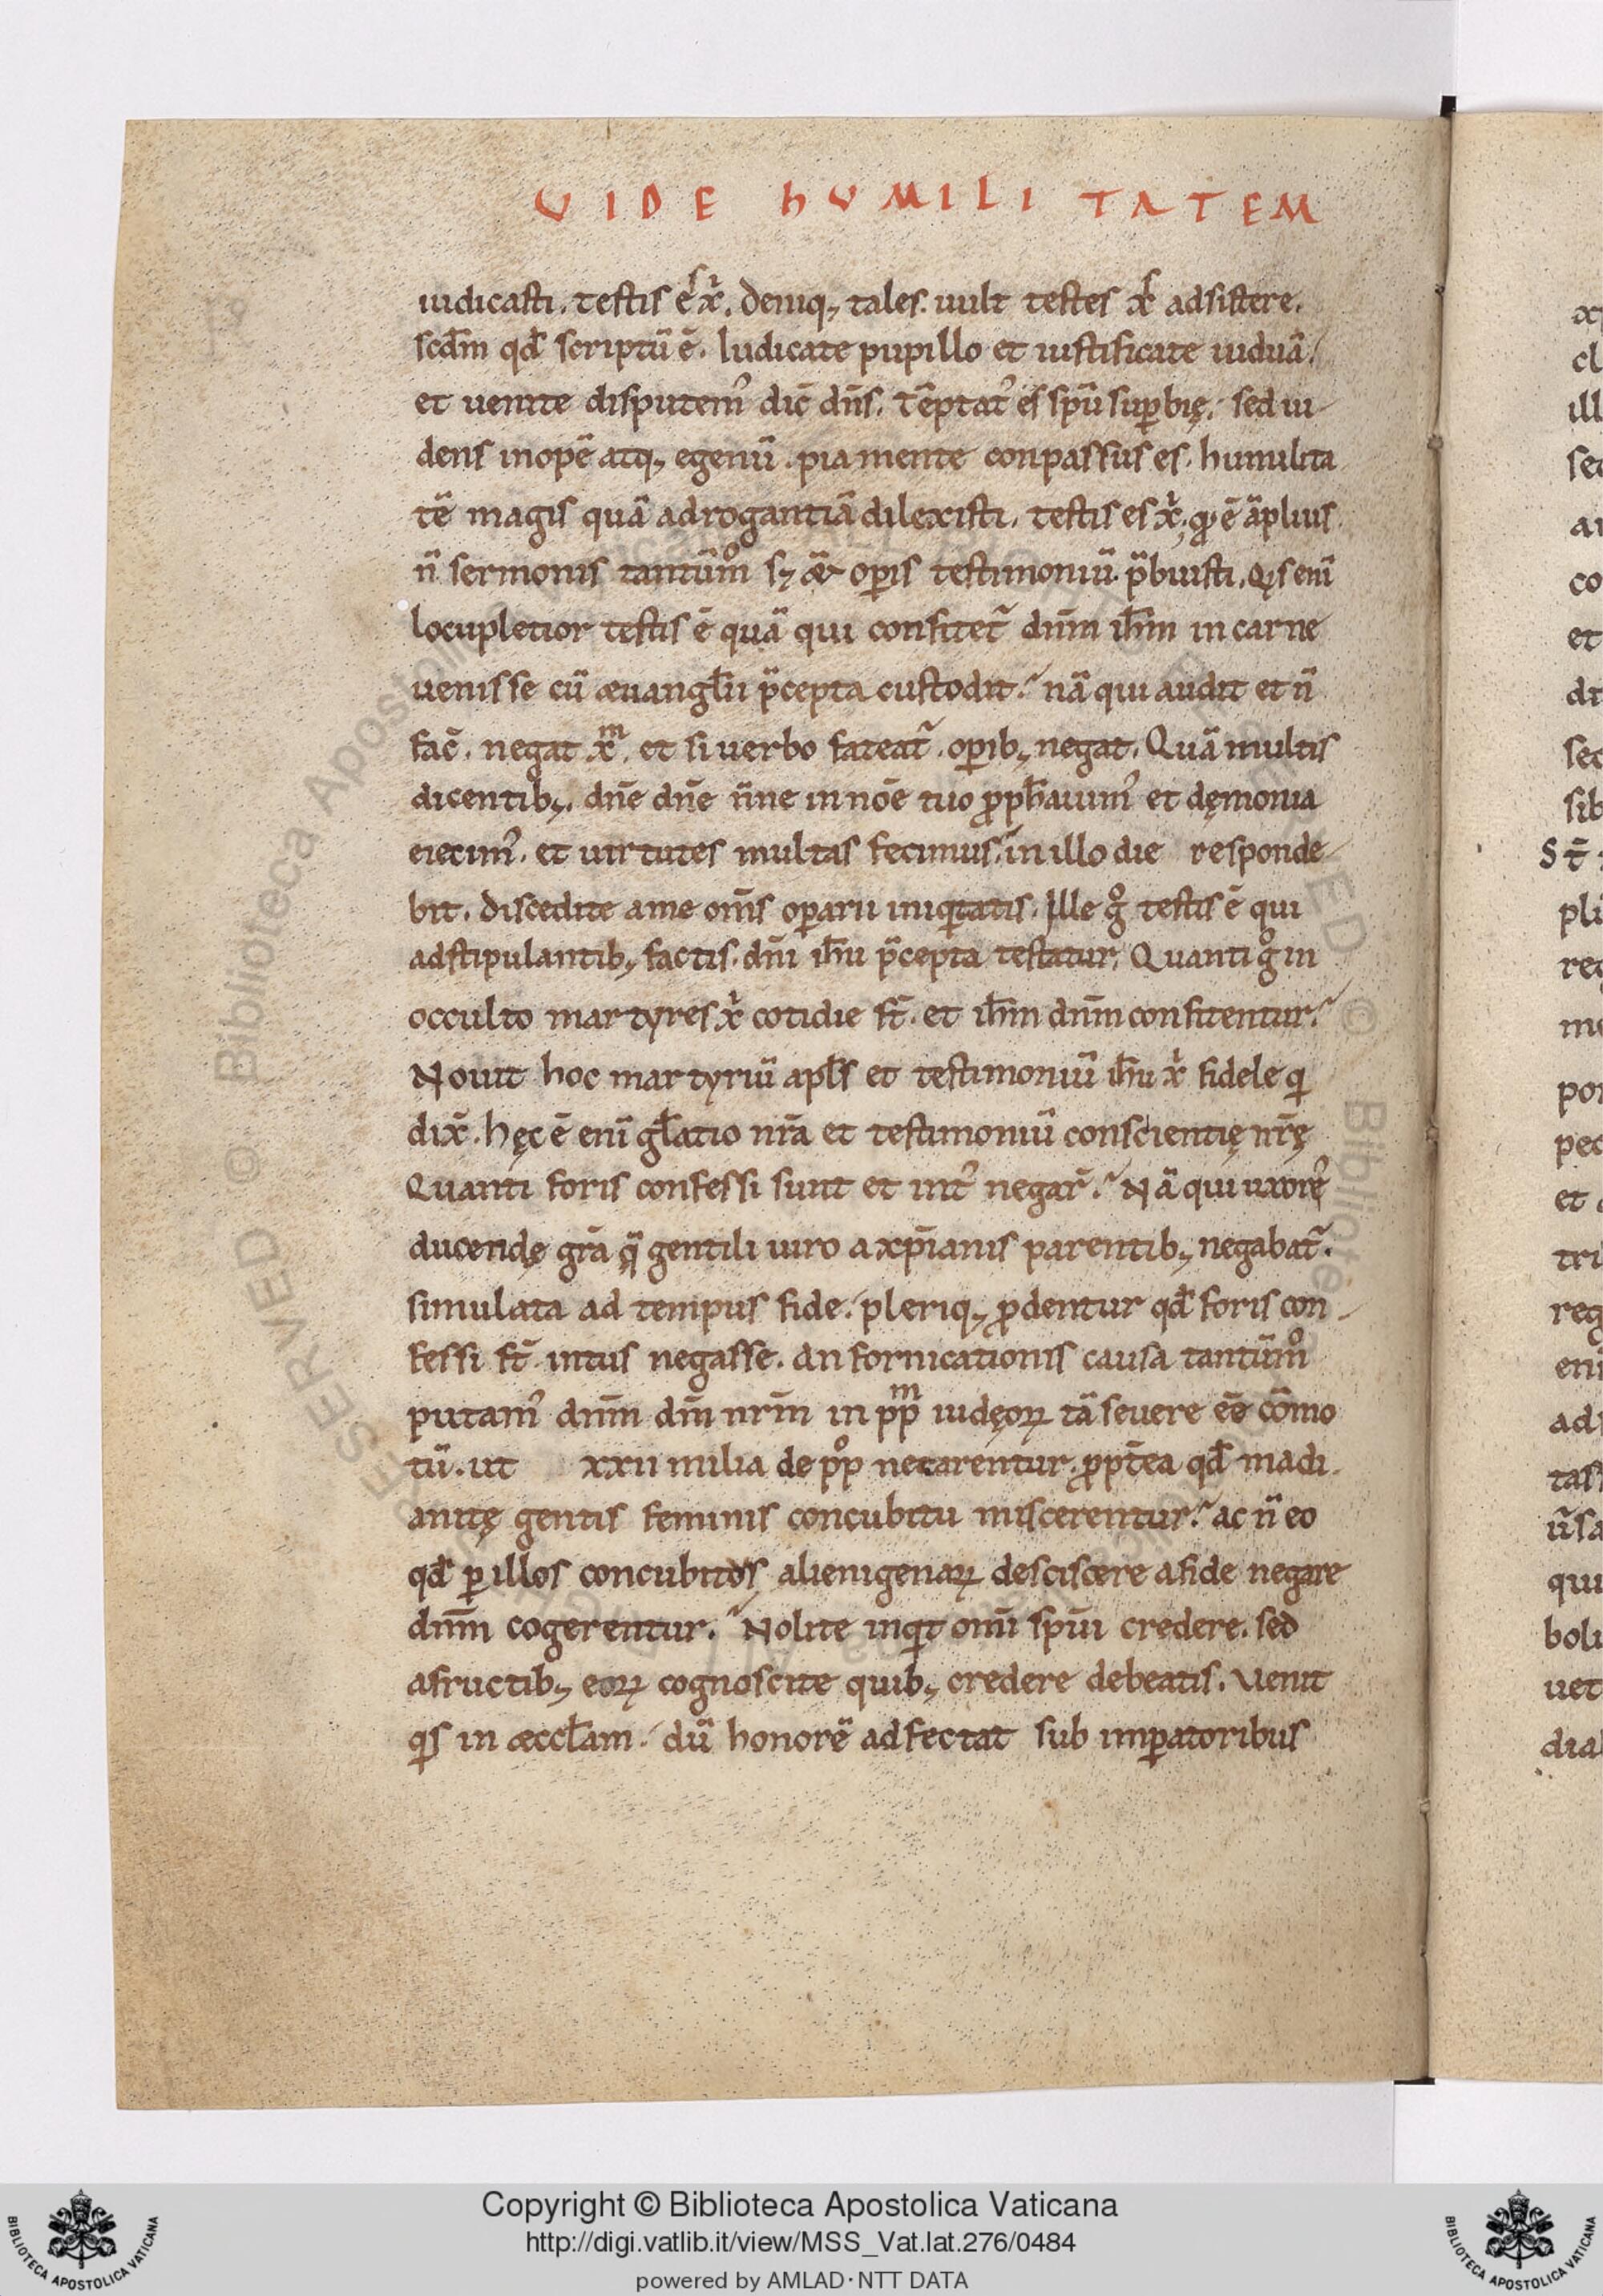 VIDE hVMILITATEM
iudicasti. testis e᷒ xı̓. Deniq; tales. uult testes xs̄ adsistere.
scd̄m qd̄ scriptū ē. Iudicate pupillo et iustificate uiduā.
et uenite disputem᷒ dic̄ dn̄s. Tēptat᷒ es spū sup̱bię. sed ui
dens inopē atq; egenū. pia mente conpassus es. humilita
tē magis quā adrogantiā dilexisti. testis es xı̓. qđ ē āplius
n̄ sermonis tantūm̊ sꝫ & opis testimoniū p̄buisti. Qis enī
locupletior testis ē quā qui confitet᷑ dn̄m ihm̄ in carne
uenisse cū æuanglii p̄cepta custodit. nā qui audit et n̄
fac̄. negat xm̄. et si uerbo fateat᷑. op̱ib; negat. Quā multis
dicentib;. dn̄e dn̄e n̄ne in nōe tuo ꝓph̄auim᷒ et dęmonia
eiecim᷒. et uirtutes multas fecimus. in illo die responde
bit. Discedite a me om̄s op̱arii iniqitatis. Ille g̊ testis ē qui
adstipulantib; factis. dn̄i ihū p̄cepta testatur. Quanti g̊ in
occulto martyres xı̓ cotidie st̄. et ihm̄ dn̄m confitentur.
Nouit hoc martyriū apls̄ et testimoniū ihū xı̓ fidele qi
dix̄. hęc ē enī gl̄atio nr̄a et testimoniū conscientię nr̄ę
Quanti foris confessi sunt et int᷒ negar̄. Nā qui uxorē
ducendę grā q̄ gentili uiro a xp̄ianis parentib; negabat᷑.
simulata ad tempus fide. pleriq; ꝓdentur qd̄ foris con
fessi st̄ intus negasse. An fornicationis causa tantūm̊
putam᷒ dn̄m dm̄ nr̄m in ppm̄ iudęoꝝ tā seuere eē cōmo
tū. ut xxii milia de pp̊ necarentur. ꝓpt̄ea qd̄ madi
anitę gentis feminis concubitu miscerentur. ac n̄ eo
qd̄ ꝑ illos concubitos alienigenaꝝ desciscere a fide negare
dn̄m cogerentur. Nolite inqit om̄i spūi credere. sed
a fructib; eoꝝ cognoscite quib; credere debeatis. Venit
qis in æccl̄am. dū honorē adfectat sub imp̱atoribus
Copyright © Biblioteca Apostolica Vaticana
http://digi.vatlib.it/view/MSS_Vat.lat.276/0484
powered by AMLAD·NTT DATA